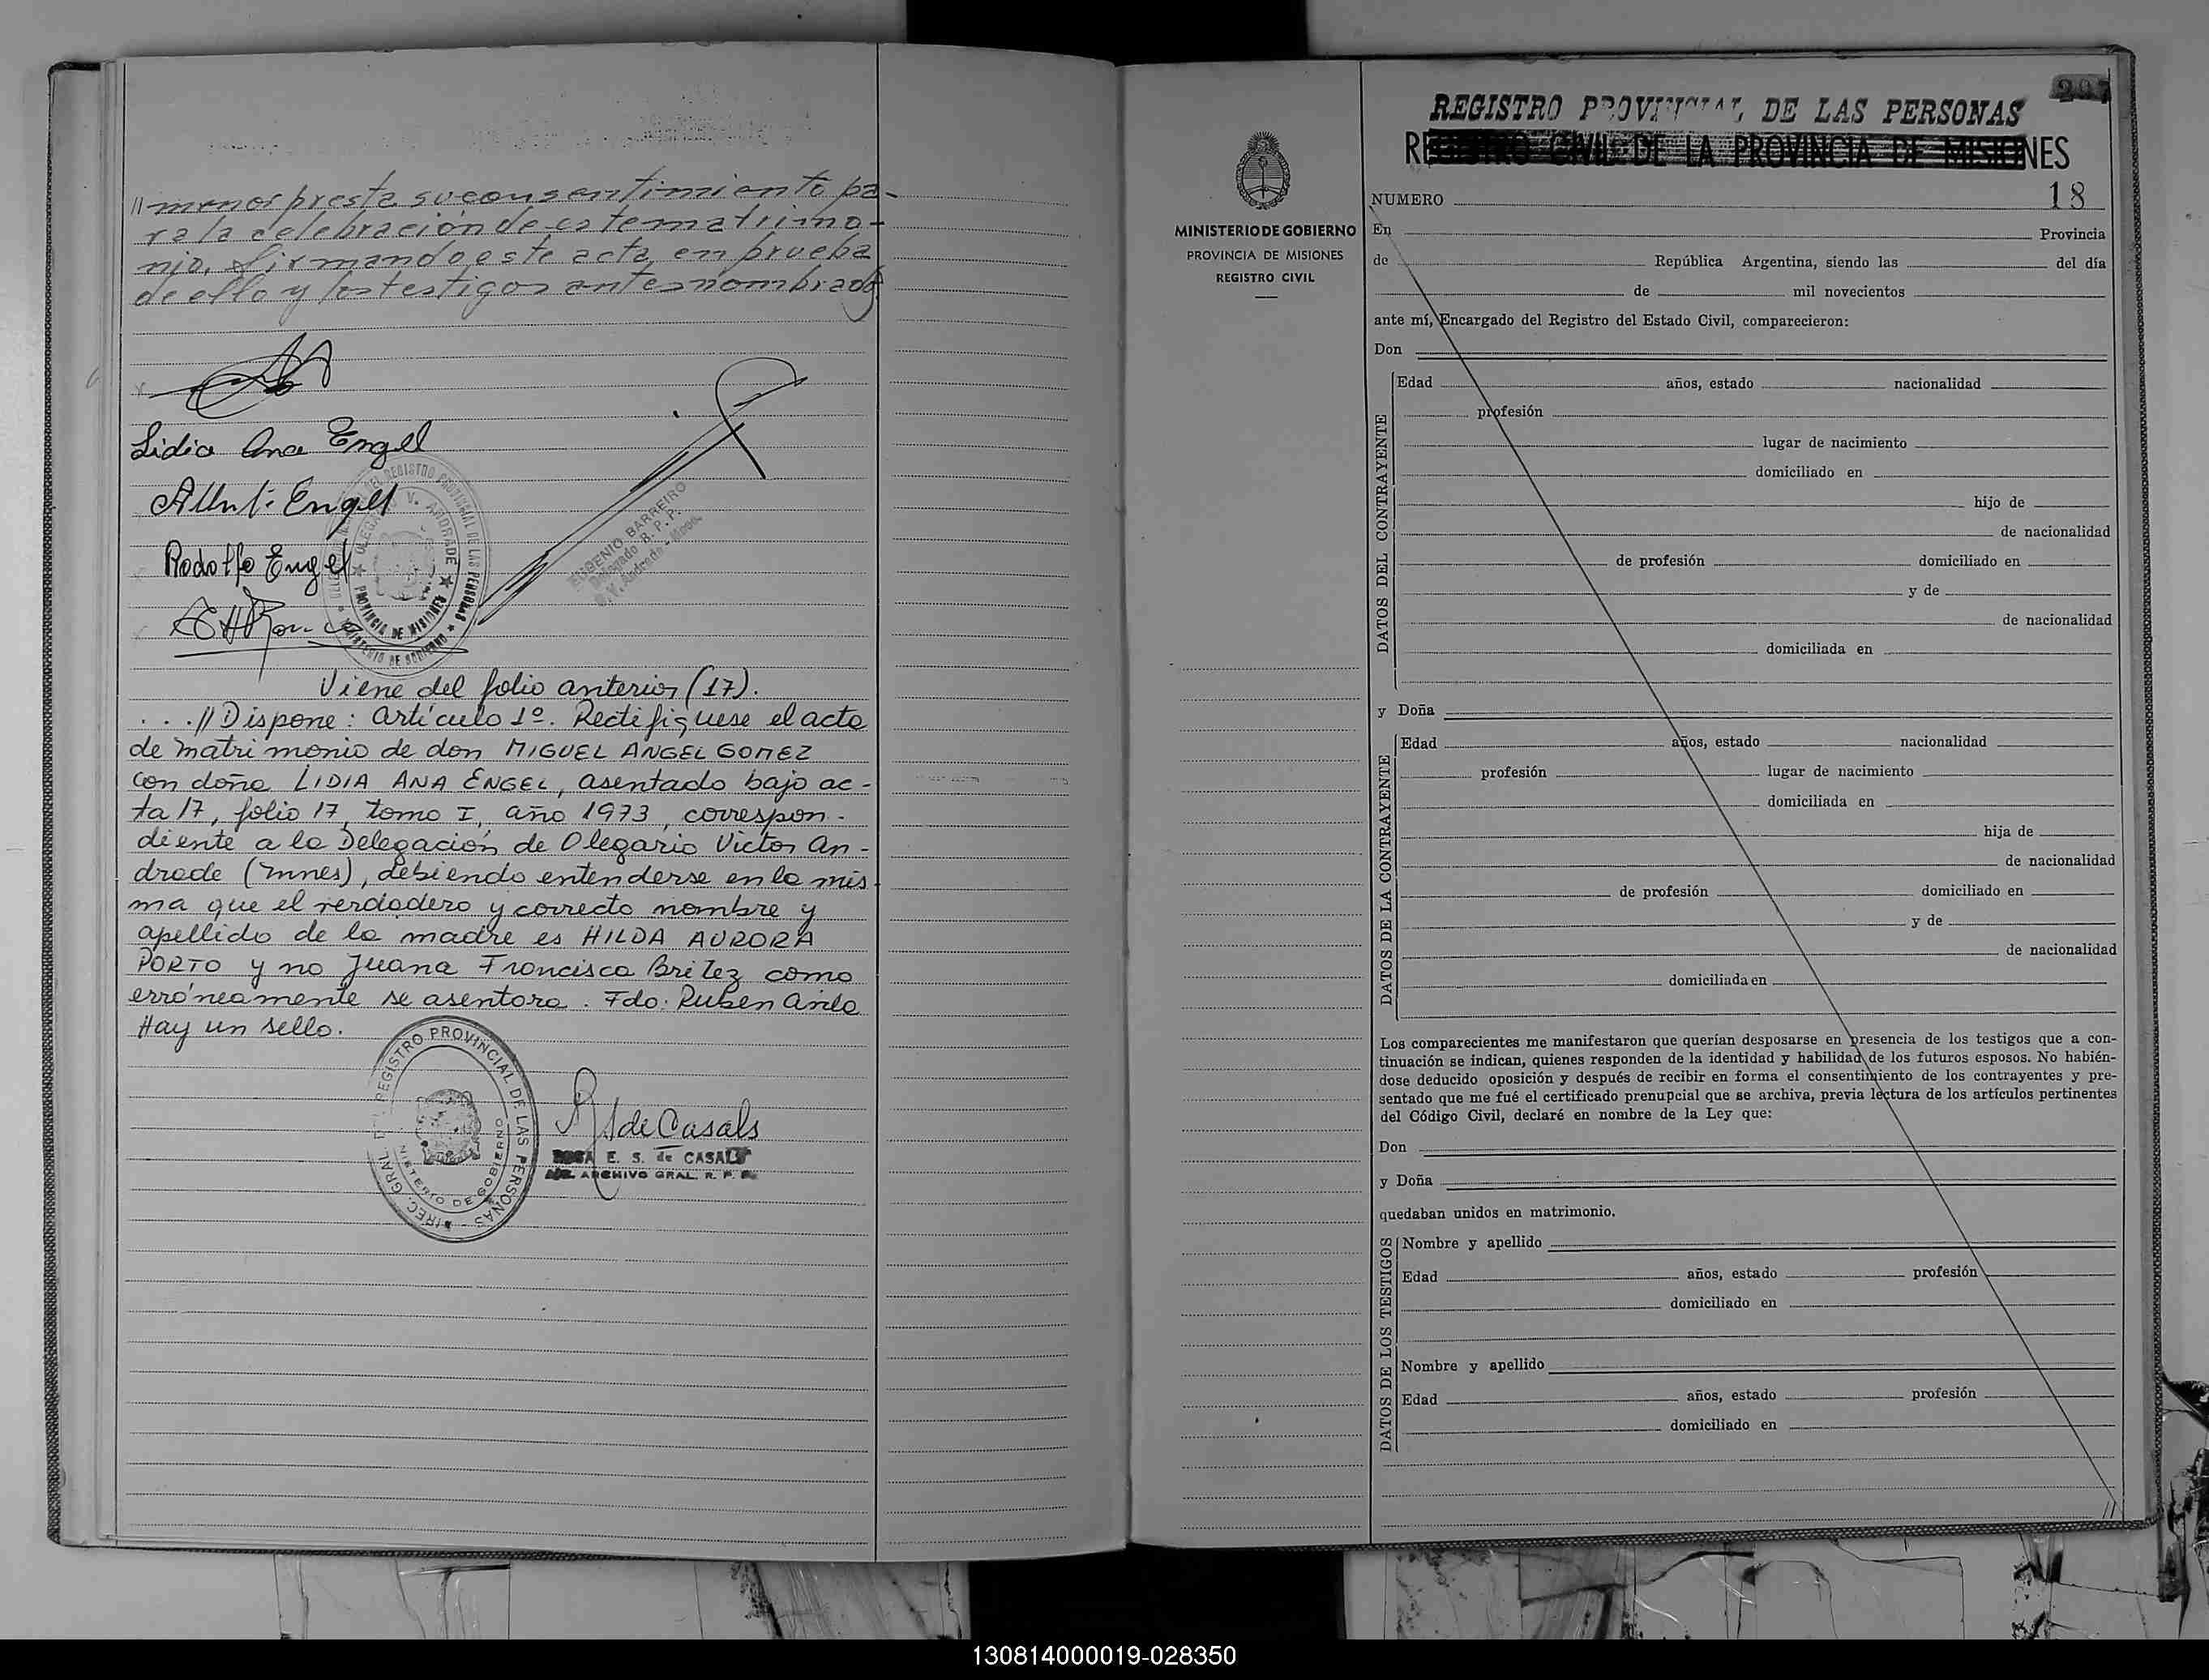 // menor presta su consentimiento pa-
ra la celebración de este matrimo-
nio, firmando este acta en prueba
de ello y los testigos antes nombrados
Lidia Ana Engel
Engel
Rodolfo Engel
DEL REGISTRO PROVINCIAL DE LAS PERSONAS
OLEGARIO V. ANDRADE
PROVINCIA DE MISIONES
MINISTERIO DE GOBIERNO
EUGENIO BARREIRO
Delegado R. P. P.
O. V. Andrade - Mnes.
Viene del folio anterior (17).
...// Dispone: Artículo 1º. Rectifiquese el acta
de matrimonio de don MIGUEL ANGEL GOMEZ
con doña LIDIA ANA ENGEL, asentado bajo ac-
ta 17, folio 17, tomo I, año 1973, correspon-
diente a la Delegación de Olegario Victor An-
drade (mnes), debiendo entenderse en la mis
ma que el verdadero y correcto nombre y
apellido de la madre es HILDA AURORA
PORTO y no Juana Francisca Britez como
erróneamente se asentara. Fdo: Ruben
Hay un sello.
DIREC. GRAL. DEL REGISTRO PROVINCIAL DE LAS PERSONAS
MINISTERIO DE GOBIERNO
de Casals
ROSA E. S. de CASALS
ARCHIVO GRAL. R. P. P.
MINISTERIO DE GOBIERNO
PROVINCIA DE MISIONES
REGISTRO CIVIL
REGISTRO PROVINCIAL DE LAS PERSONAS
REGISTRO CIVIL DE LA PROVINCIA DE MISIONES
NUMERO 18
En Provincia
de República Argentina, siendo las del día
de mil novecientos
ante mí, Encargado del Registro del Estado Civil, comparecieron:
Don
DATOS DEL CONTRAYENTE
Edad años, estado nacionalidad
profesión
lugar de nacimiento
domiciliado en
hijo de
de nacionalidad
de profesión domiciliado en
y de
de nacionalidad
domiciliada en
y Doña
DATOS DE LA CONTRAYENTE
Edad años, estado nacionalidad
profesión lugar de nacimiento
domiciliada en
hija de
de nacionalidad
de profesión domiciliado en
y de
de nacionalidad
domiciliada en
Los comparecientes me manifestaron que querían desposarse en presencia de los testigos que a con-
tinuación se indican, quienes responden de la identidad y habilidad de los futuros esposos. No habién-
dose deducido oposición y después de recibir en forma el consentimiento de los contrayentes y pre-
sentado que me fué el certificado prenupcial que se archiva, previa lectura de los artículos pertinentes
del Código Civil, declaré en nombre de la Ley que:
Don
y Doña
quedaban unidos en matrimonio.
DATOS DE LOS TESTIGOS
Nombre y apellido
Edad años, estado profesión
domiciliado en
Nombre y apellido
Edad años, estado profesión
domiciliado en
//
130814000019-028350